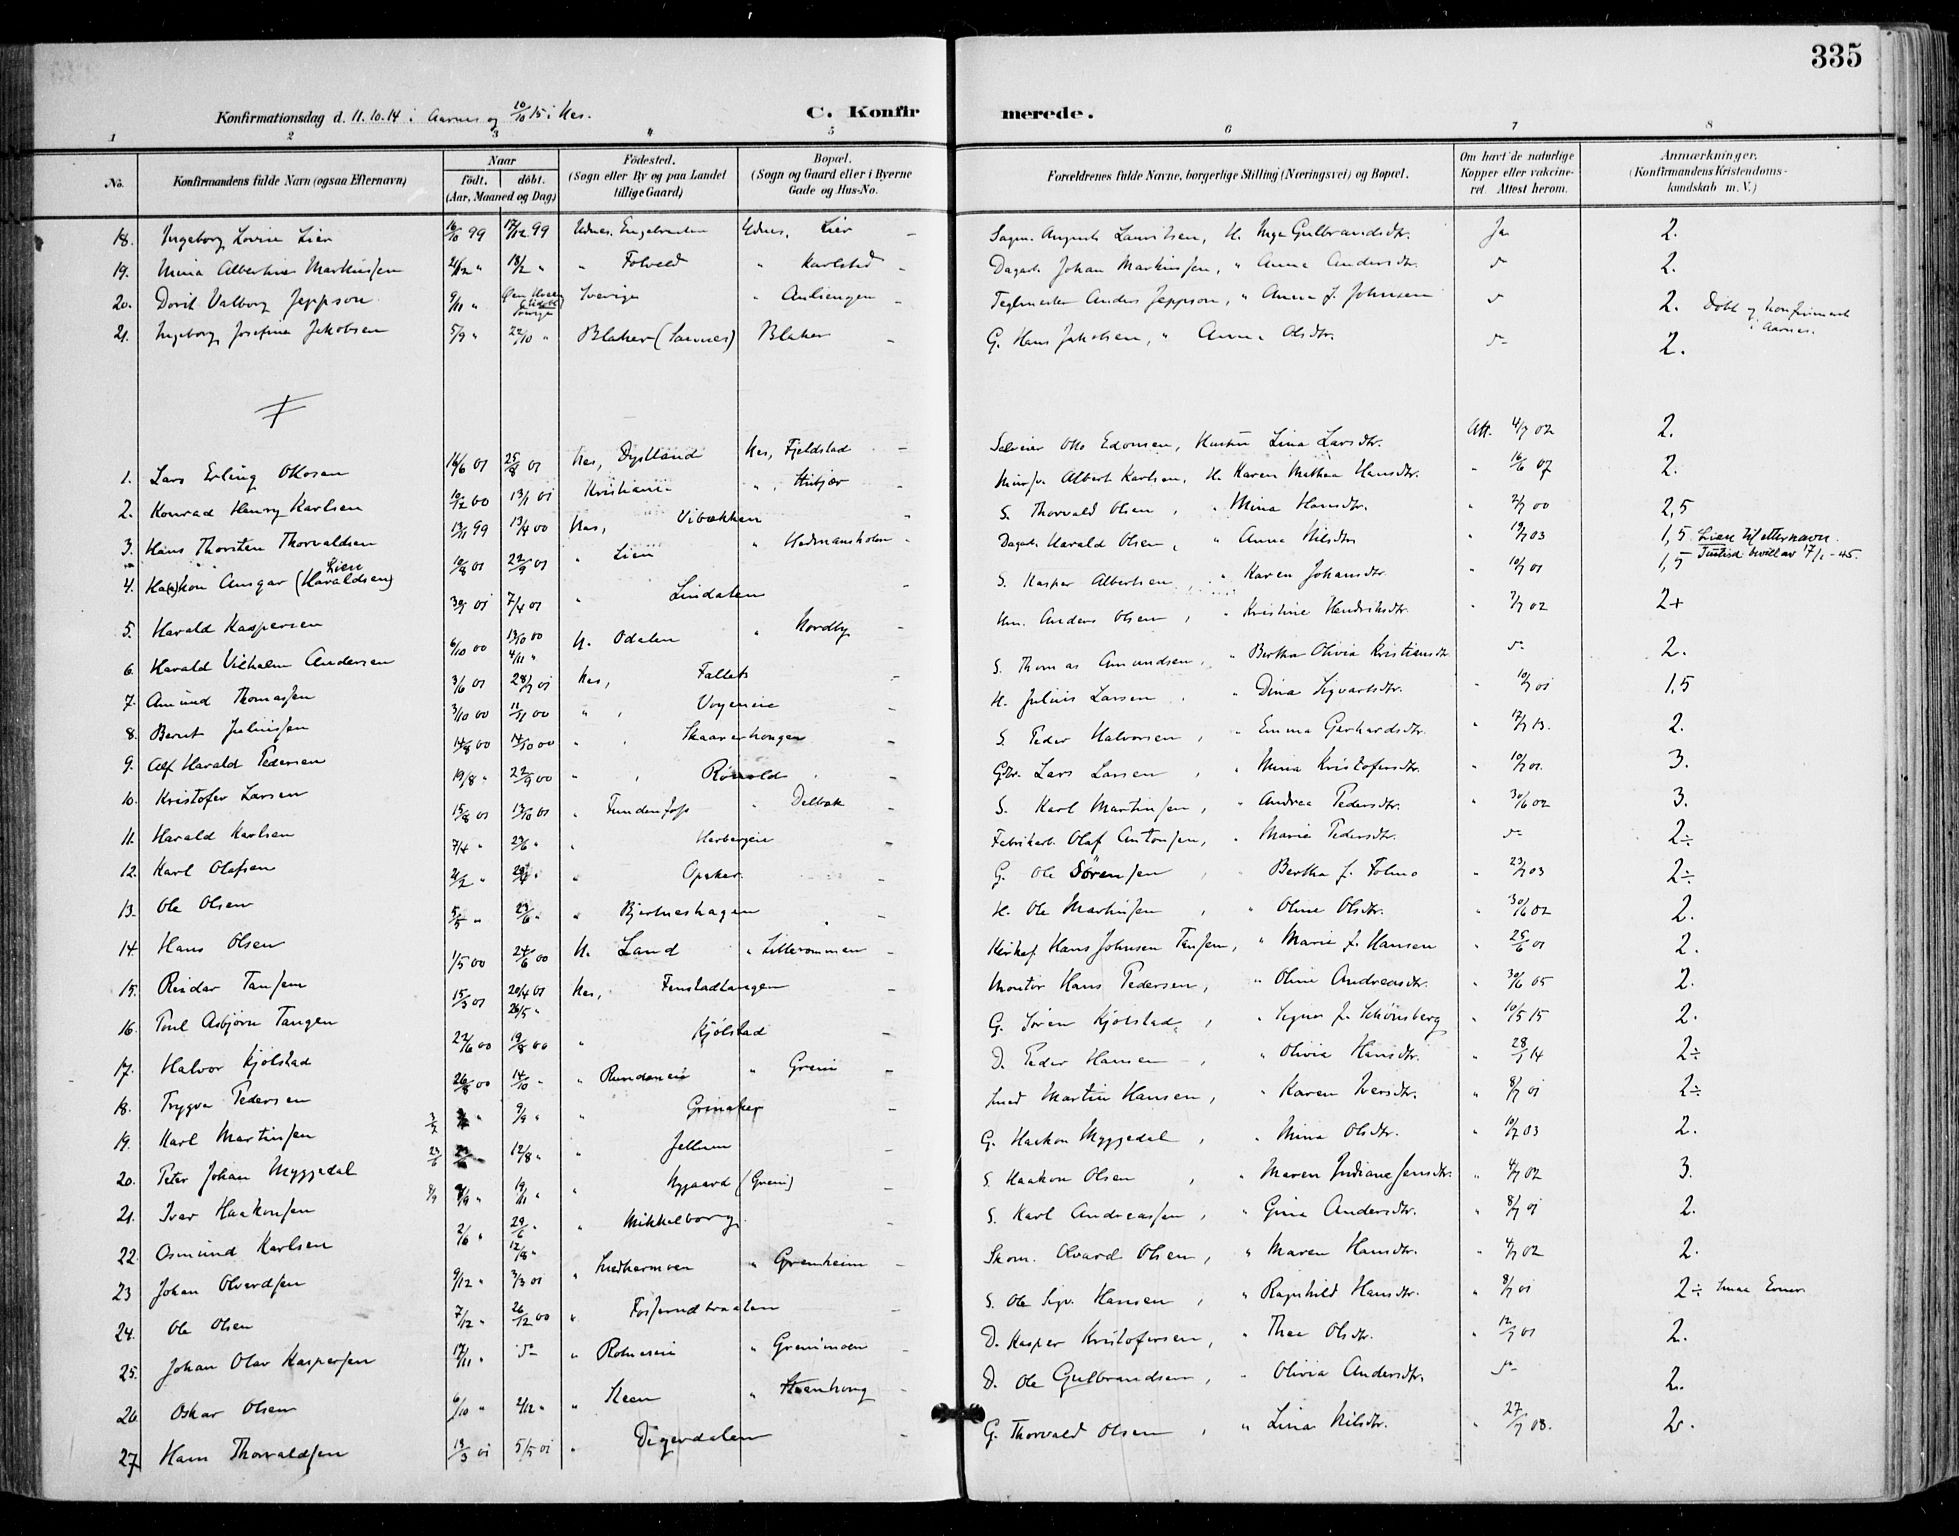 335
Konfirmationsdag d. 11.10.14 i Aarnes og 10/10 15 i Nes. C. Konfirmerede.
1 2 3 4 5 6 7 8
No. Konfirmandens fulde Navn (ogsaa Efternavn) Naar födt. döbt. (Aar, Maaned og Dag) Födested. (Sogn eller By og paa Landet tillige Gaard) Bopæl. (Sogn og Gaard eller i Byerne Gade og Hus-No. Forældrenes fulde Navne, borgerlige Stilling (Næringsvei) og Bopæl. Om havt de naturlige Kopper eller vakcineret. Attest herom. Anmærkninger. (Konfirmandens Kristendomskundskab m. V.)
18. Ingeborg Lovise Lier 16/10 99 17/12 99 Udnes, Udnes, Lier Augusts Lauritsen, H. Inga Gulbrandsdtr. Ja 2.
19. Mina Albertine Markussen 18/2 " " Folveld " Karlstad Dagarb. Johan Markussen, " Anna Andersdtr. 2.
20. Dorit Valborg Jeppson 9/11 " Sverige " Auliengen Teglmester Anders Jeppson, " Anna f. Johnsen 2. Døbt og konfirmert i Aarnes.
21. Ingeborg Josefine Jakobsen 5/9 " 22/10 " Blaker (Sørumnes) Blaker G. Hans Jakobsen, " Anna Olsdtr. 2.
1. Lars Erling Ottosen 16/6 01 25/8 01 Nes, Dystland Nes, Fjeldstad Selveier Otto Edvinsen, Hustru Lina Larsdtr. Att. 4/7 02 2.
2. Konrad Henry Karlsen 10/12 00 13/1 01 Kristiania " Albert Karlsen, H. Karen Mathea Hansdtr. " 16/6 07 2.
3. Hans Thorsten Thorvaldsen 13/11 99 13/4 00 Nes, Vibækken S. Thorvald Olsen, " Mina Hansdtr. " 2/7 00 2,5
4. Ha(a)kon Ansgar (Haraldsen) Lien 10/8 01 22/9 01 " Lien " Hedmansholm Dagarb. Harald Olsen, " Anna Nilsdtr " 19/7 03 1,5 Lien til etternavn. Justisd. bevill. av 17/1-45.
5. Harald Kaspersen 01 7/4 01 " Lindalen S. Kasper Albertsen, " Karen Johansdtr. " 10/7 01 1,5
6. Harald Vilhelm Andersen 6/10 00 13/10 00 4/11 " N. Odalen " Nordby Hm. Anders Olsen, " Kristine Hendriksdtr. " 7/7 02 2+
7. Amund Thomassen 3/6 01 28/7 01 Nes, Fallet S. Thomas Amundsen, " Bertha Olivia Kristiansdtr. 2.
8. Bernt Juliussen 3/10 00 11/11 00 " Voyeneie H. Julius Larsen, " Dina Sigvartsdtr. " 10/7 01 1,5
9. Alf Harald Pedersen 14/8 00 14/10 00 " Skaaverhaugen S. Peder Halvorsen, " Emma Gerhardsdtr. " 17/7 13. 2.
10. Kristofer Larsen 19/8 " 22/9 00 " Rønold Gbr. Lars Larsen, " Mina Kristofersdtr. " 10/7 01. 3.
11. Harald Karlsen 15/8 01 13/10 01 " Fundenfoss " Delbæk S. Karl Martinsen, " Andrea Pedersdtr. " 30/6 02 3.
12. Karl Olafsen 7/4 " 23/6 " " Herbergeie Fabrikarb. Olaf Antonsen, " Marie Pedersdtr. 2÷
13. Ole Olsen 2/2 " " " Opaker G. Ole Sörensen, " Bertha f. Folmo " 23/7 03 2÷
14. Hans Olsen 5/5 " 23/6 " " Bjertneshagen H. Ole Martinsen, " Oline Olsdtr. " 30/6 02 2.
15. Reidar Tansem 1/5 00 24/6 00 N. Land " Lillerommen Hans Johnsen Tansem, " Marie f. Hansen " 25/6 01 2.
16. Poul Asbjørn Tangen 15/3 01 20/4 01 26/5 " Nes, Fenstadtangen Montør Hans Pedersen, " Oline Andreasdtr. " 30/6 05 2.
17. Halvor Kjølstad 22/6 00 19/8 00 " Kjølstad G. Søren Kjølstad, " Signe f. Schönsberg " 10/5 15 2.
18. Trygve Pedersen 26/8 00 14/10 " " Rundoneie " Greni D. Peder Hansen, " Olivia Hansdtr. " 28/1 14 2÷
19. Karl Martinsen 3/7 9/9 " " Grinaker Smed Martin Hansen, " Karen Iversdtr. " 8/7 01 2÷
20. Peter Johan Myggedal 23/6 12/8 " " Jellum G. Haakon Myggedal, " Mina Olsdtr. " 10/7 03 2.
21. Ivar Haakonsen 8/9 " 19/11 " " Nygaard (Greni) S. Haakon Olsen, " Maren Indiane Jensdtr. " 4/7 02 3.
22. Osmund Karlsen 2/6 " 29/6 " 12/8 " " Mikkelborg S. Karl Andreassen, " Gina Andersdtr. " 8/7 01 2.
23 Johan Olvardsen 9/12 " 3/3 01 " Snekkermoen " Grenheim Skom. Olvard Olsen, " Maren Hansdtr. " 4/7 02 2.
24. Ole Olsen 7/12 " 26/12 00 " Fosserudbraaten S. Ole Sigv. Hansen, " Ragnhild Hansdtr. " 8/7 01 2÷ Smaa Evner.
25. Johan Olav Kaspersen 17/11 " " Rotneseie " Grenimoen D. Kasper Kristofersen, " Thea Olsdtr. " 12/7 01 2.
26. Oskar Olsen 6/10 " 2/12 " " Steen " Steenhaug D. Ole Gulbrandsen, " Olivia Andersdtr. 2.
27 Hans Thorvaldsen 13/3 01 5/5 01 " Digerdalen G. Thorvald Olsen, " Lina Nilsdtr. " 27/7 08. 2.